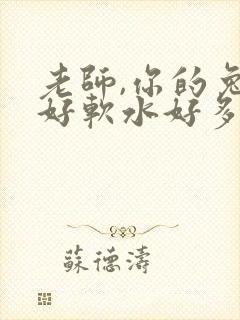 老師,你的兔
好軟水好多
蘇德濤